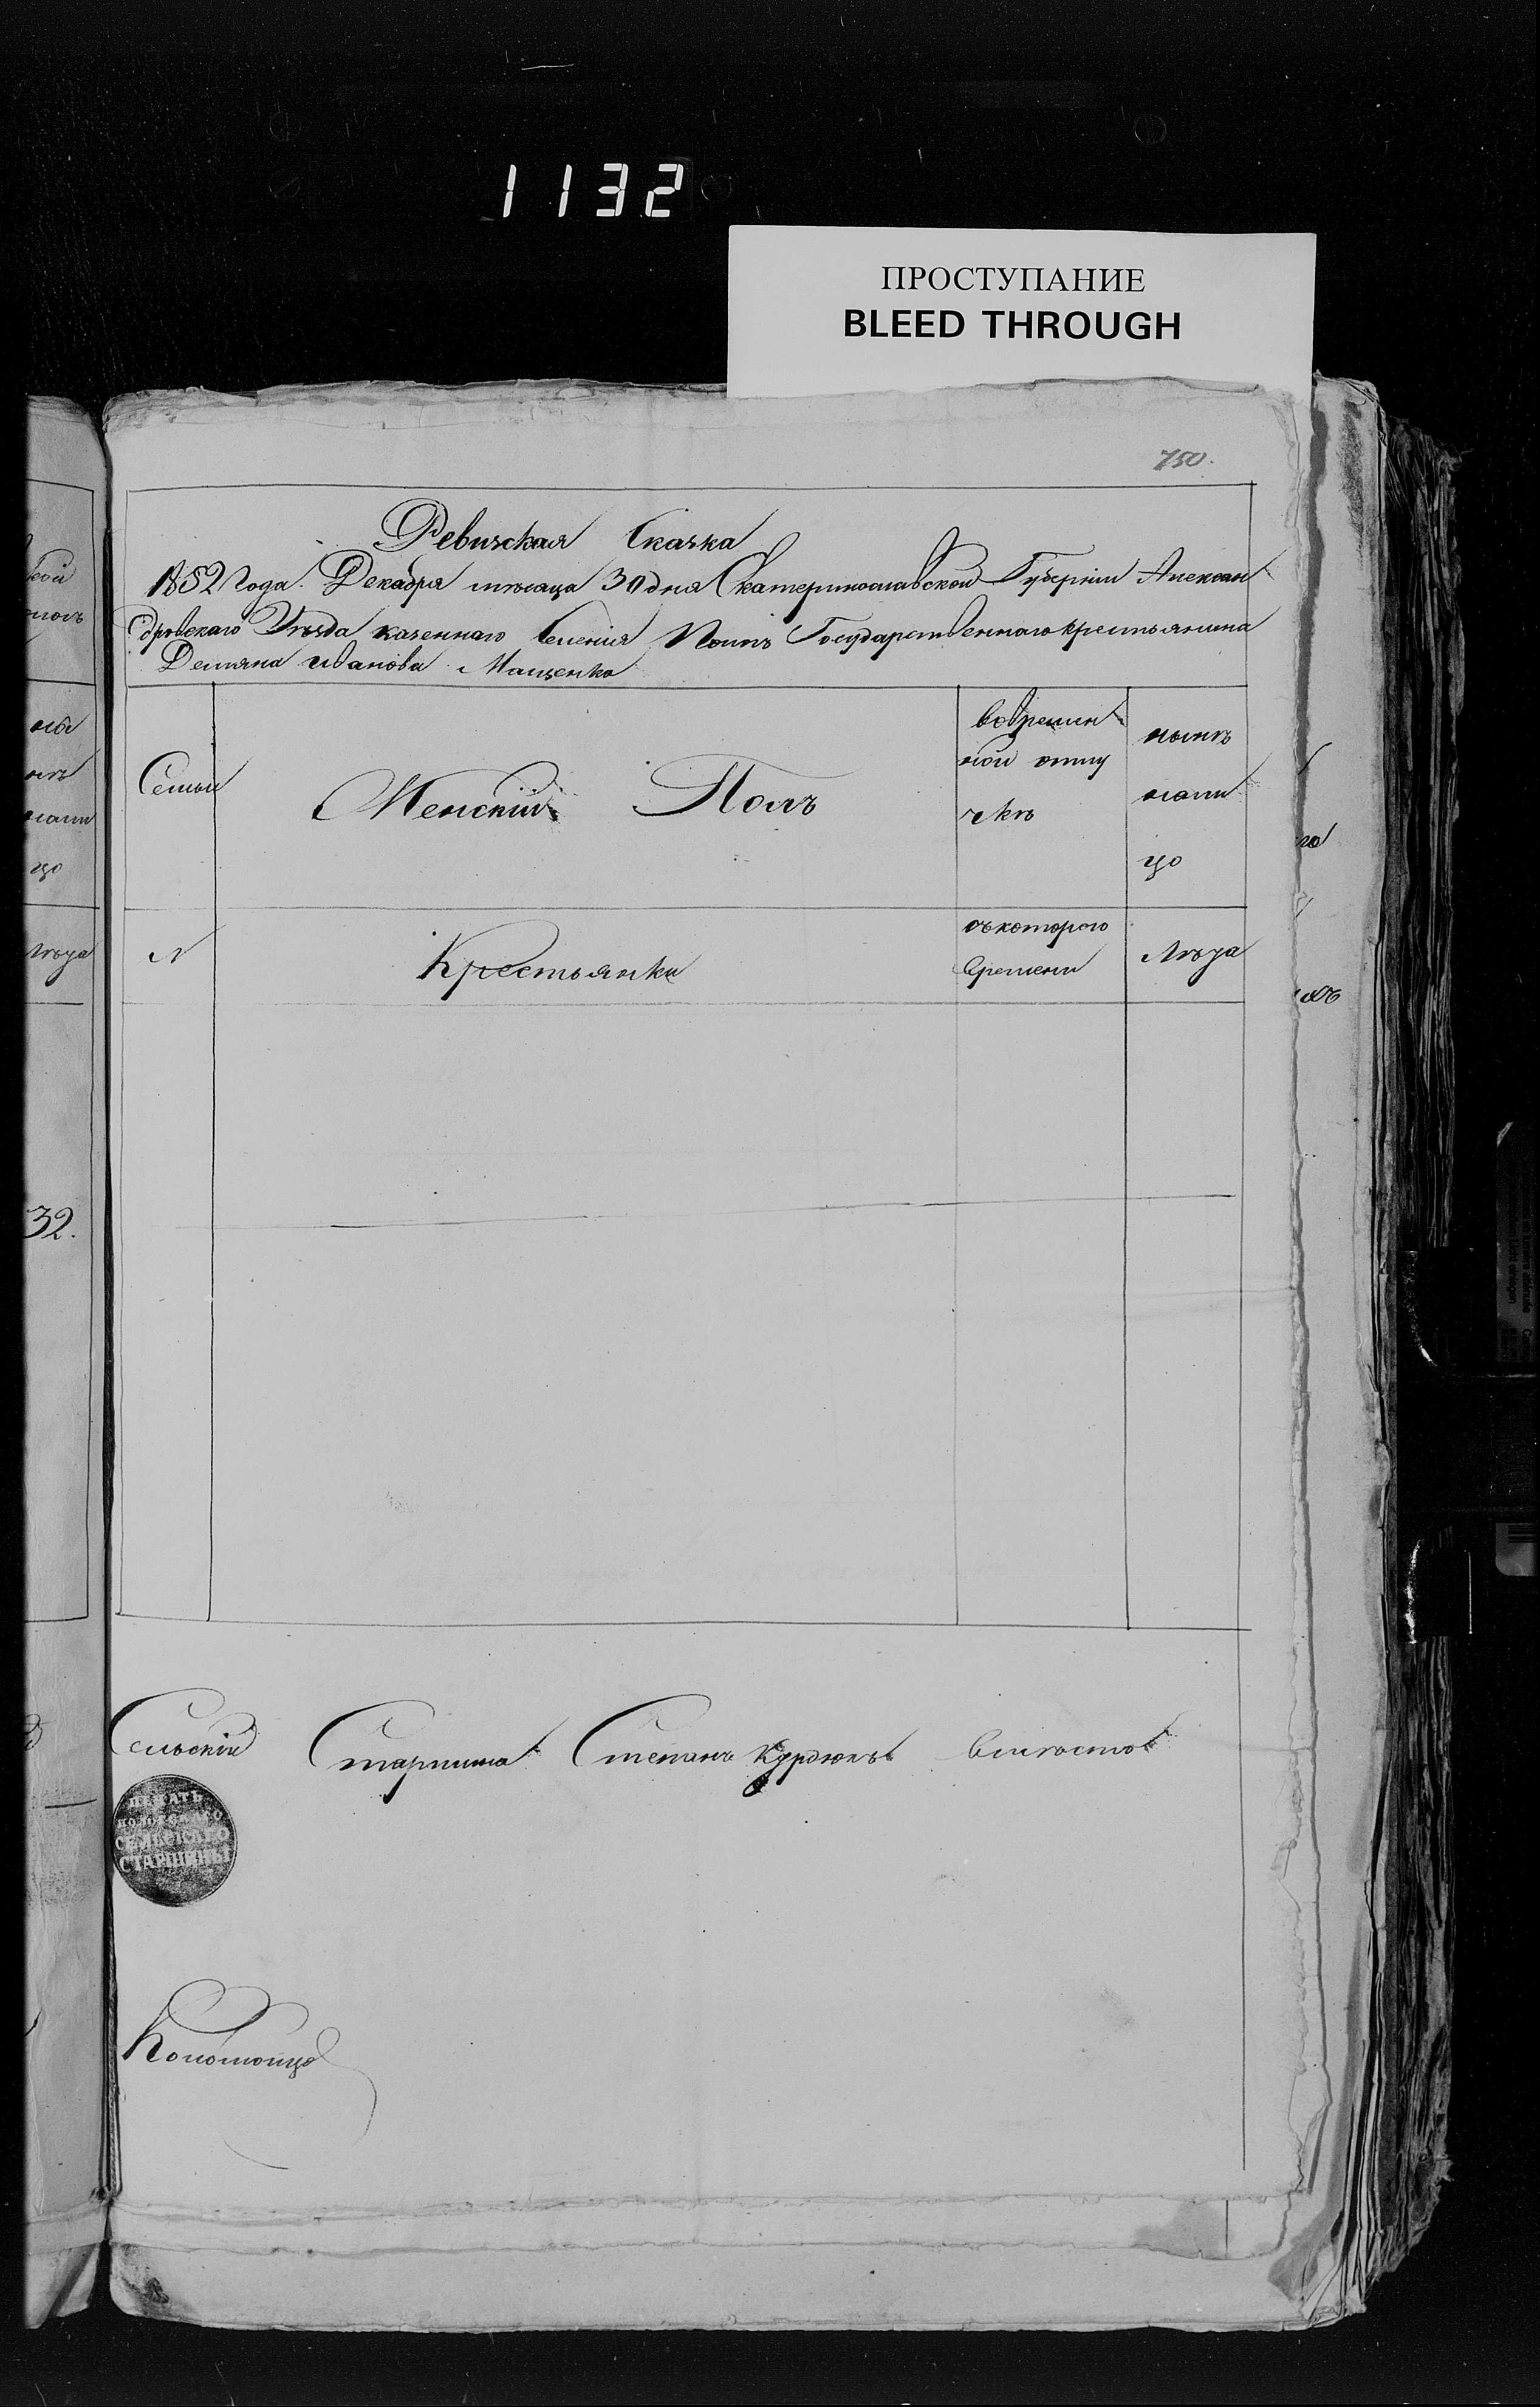 1132
ПРОСТУПАНИЕ
BLEED THROUGH
750.
Ревизская Сказка
1852 Года. Декабря месяца 30 дня Екатеринославской Губернии Алексан
дровскаго Уезда казеннаго Селения Государственнаго крестьянина
Демяна иванова Мащенка
Семьи
Женский Полъ
вовремен
ной отлу
чке
ныне
нали
цо
N
Крестьянки
съкотораго
времени
Лета
32.
Сельский Старшина Степанъ Курдюкъ
ПЕЧАТЬ
СЕЛЬСКАГО
СТАРШИНЫ